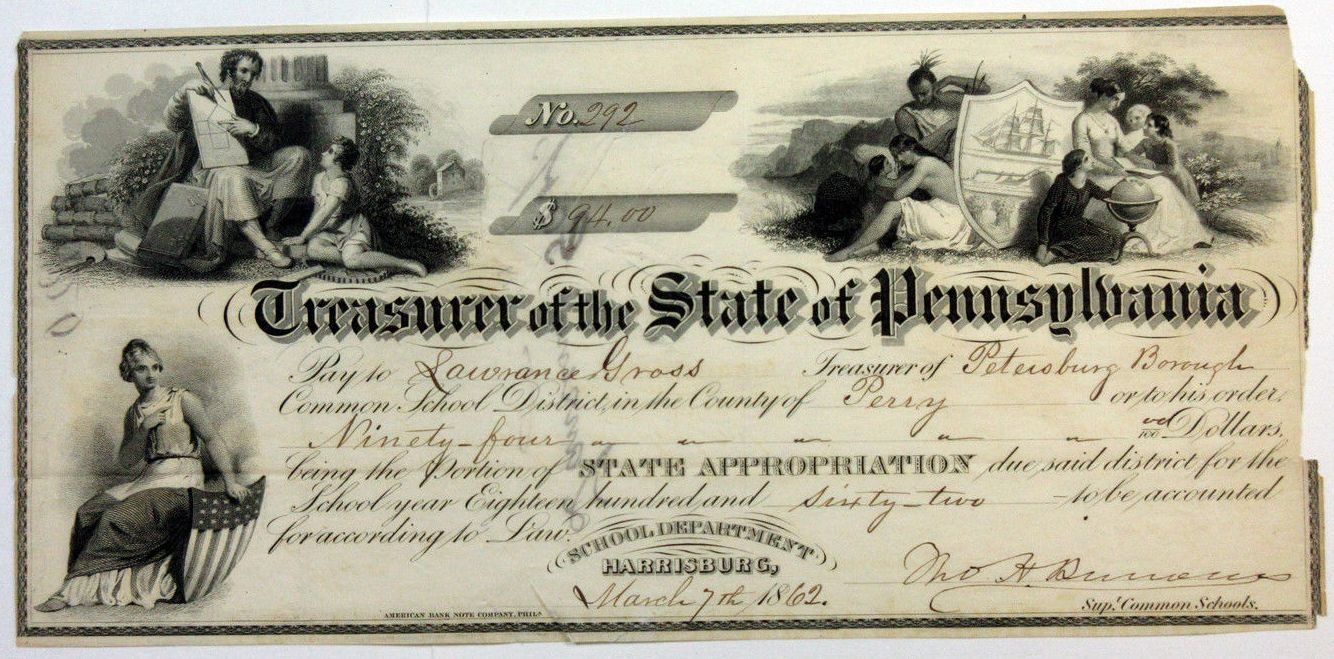 No. 292
$ 94.00
Treasurer of the State of Pennsylvania
Pay to Lawrance Gross Treasurer of Petersburg Borough
Common School District, in the County of Perry or to his order,
Ninety-four 00/100 Dollars,
being the Portion of STATE APPROPRIATION due said district for the
School year Eighteen hundred and sixty-two to be accounted
for according to Law.
SCHOOL DEPARTMENT
HARRISBURG,
March 7th 1862.
Supt. Common Schools.
AMERICAN BANK NOTE COMPANY, PHILA